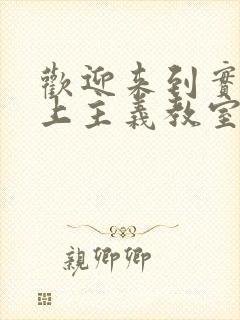 歡迎來到實
上主義教室
親卿卿